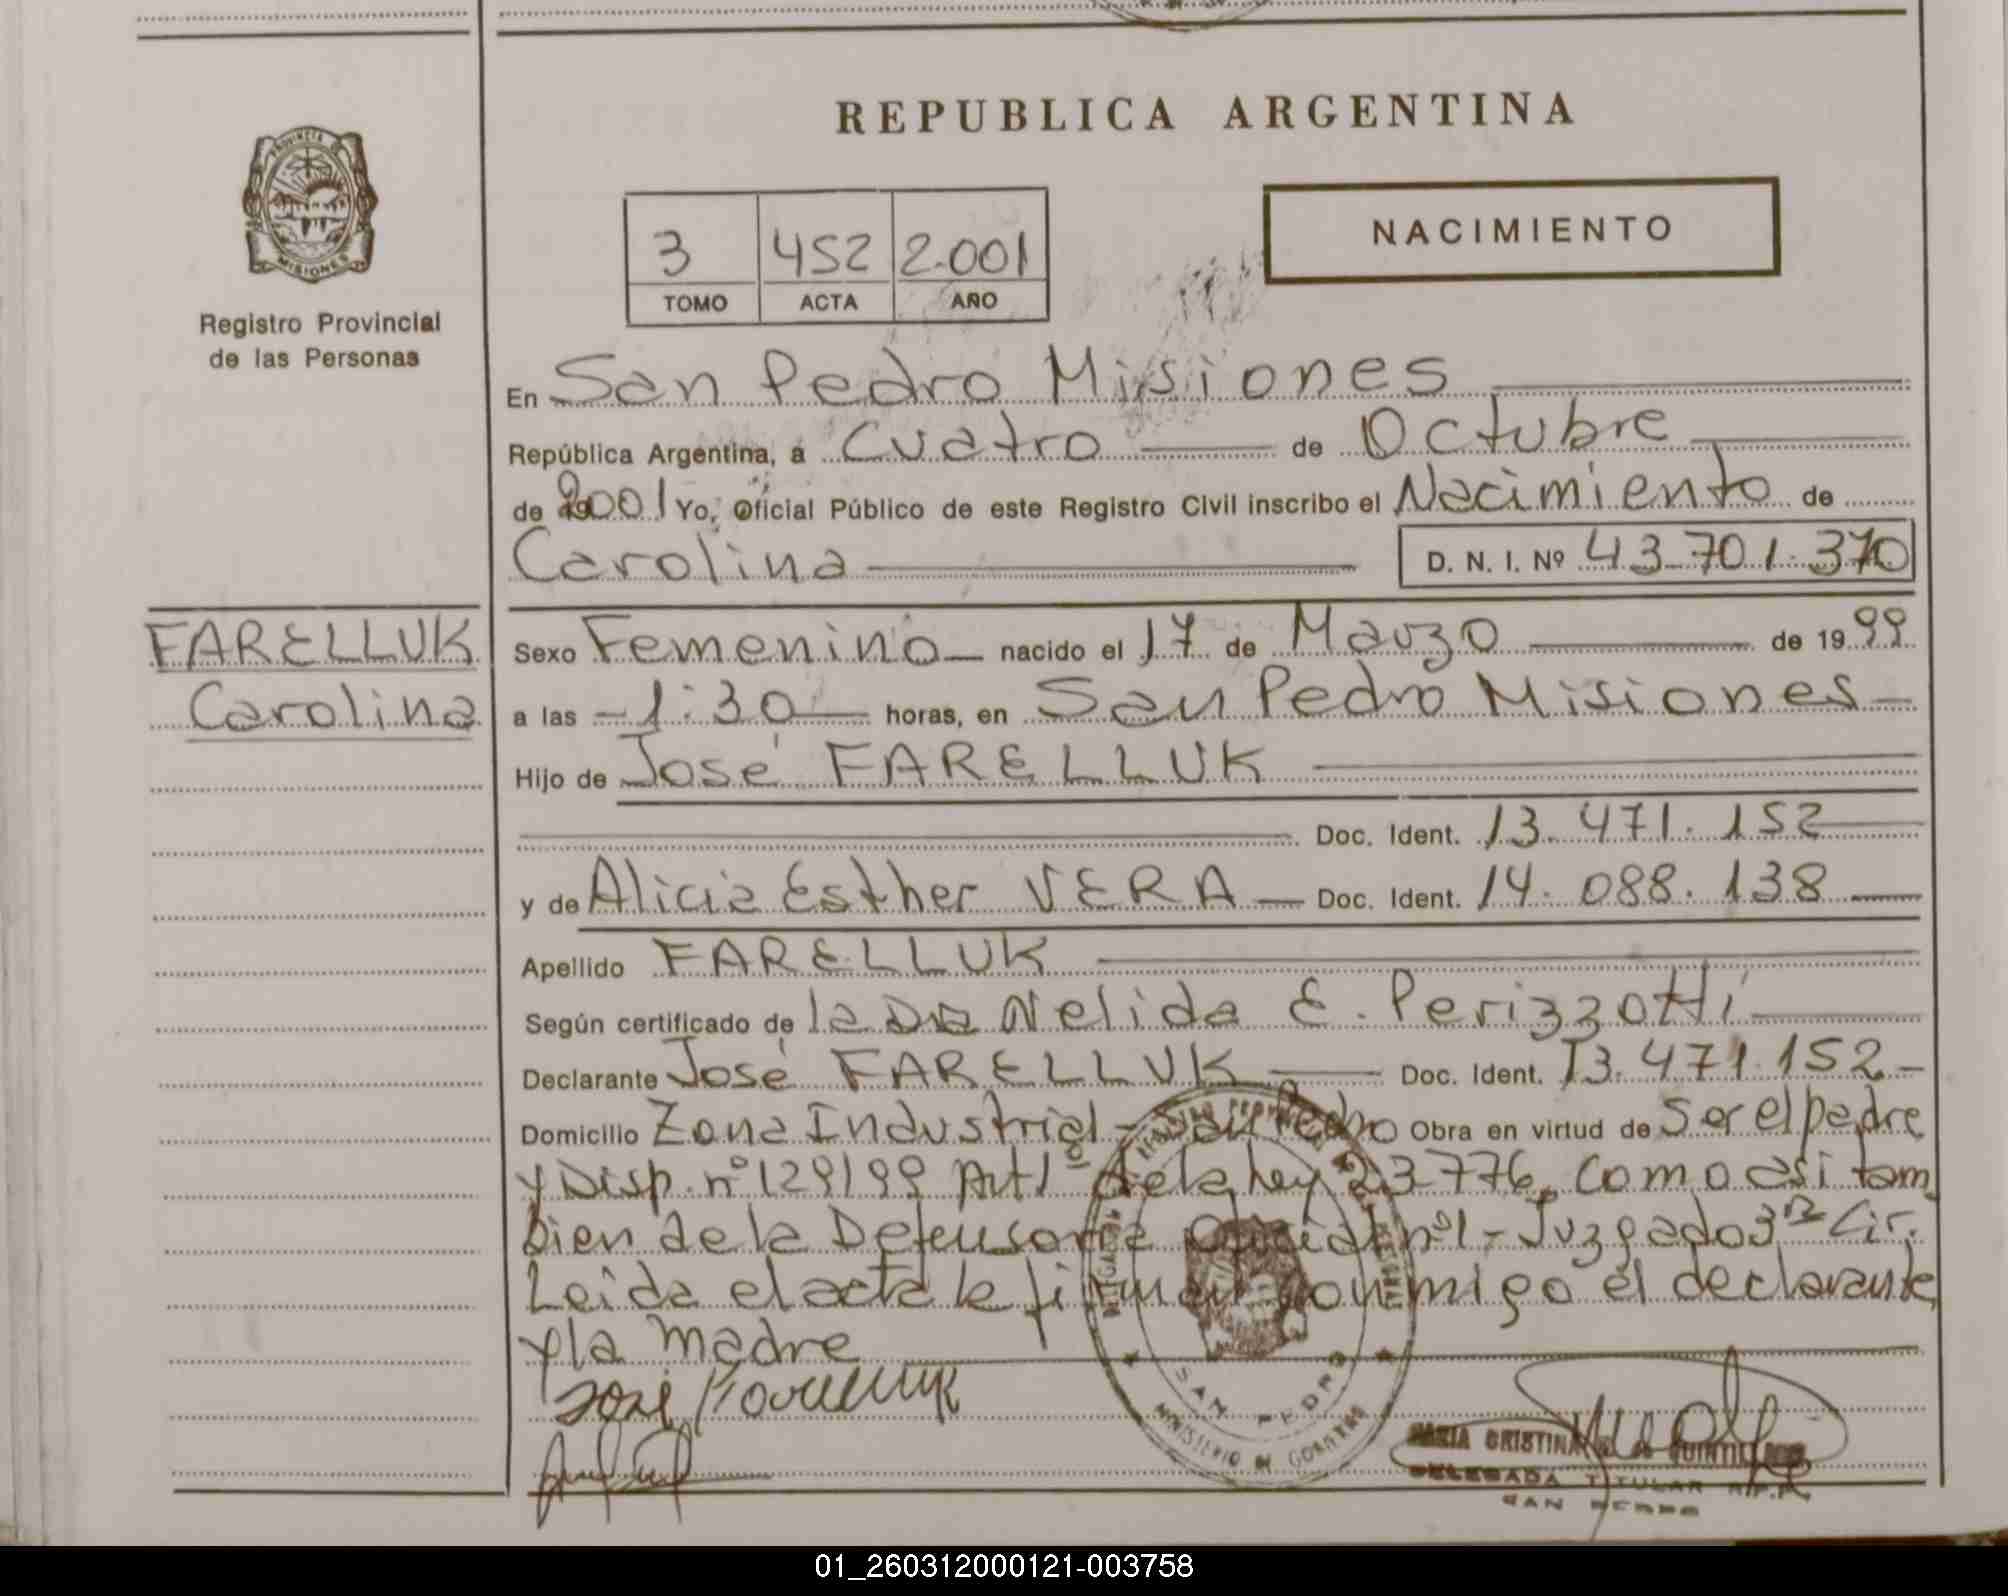 REPUBLICA ARGENTINA
PROVINCIA DE
MISIONES
Registro Provincial
de las Personas
3 452 2.001
TOMO ACTA AÑO
NACIMIENTO
En San Pedro Misiones
República Argentina, a Cuatro de Octubre
de 2001 Yo, Oficial Público de este Registro Civil inscribo el Nacimiento de
Carolina D. N. I. Nº 43.701.370
FARELLUK
Carolina
Sexo Femenino nacido el 17 de Marzo de 1999
a las 1:30 horas, en San Pedro Misiones
Hijo de José FARELLUK
Doc. Ident. 13.471.152
y de Alicia Esther VERA Doc. Ident. 14.088.138
Apellido FARELLUK
Según certificado de la Dra Nelida E. Perizzotti
Declarante José FARELLUK Doc. Ident. 13.471.152
Domicilio Zona Industrial - San Pedro Obra en virtud de Ser el padre
y Disp. nº 129/99 Art 1º de la Ley 23.776, como asi tam
bien de la Defensoria Oficial nº1 - Juzgado 3ra Cir.
Leida el acta la firman conmigo el declarante
y la madre
José Farelluk
SAN PEDRO
MINISTERIO DE GOBIERNO
MARIA CRISTINA DE QUINTILLAN
DELEGADA TITULAR R.P.P.
SAN PEDRO
01_260312000121-003758